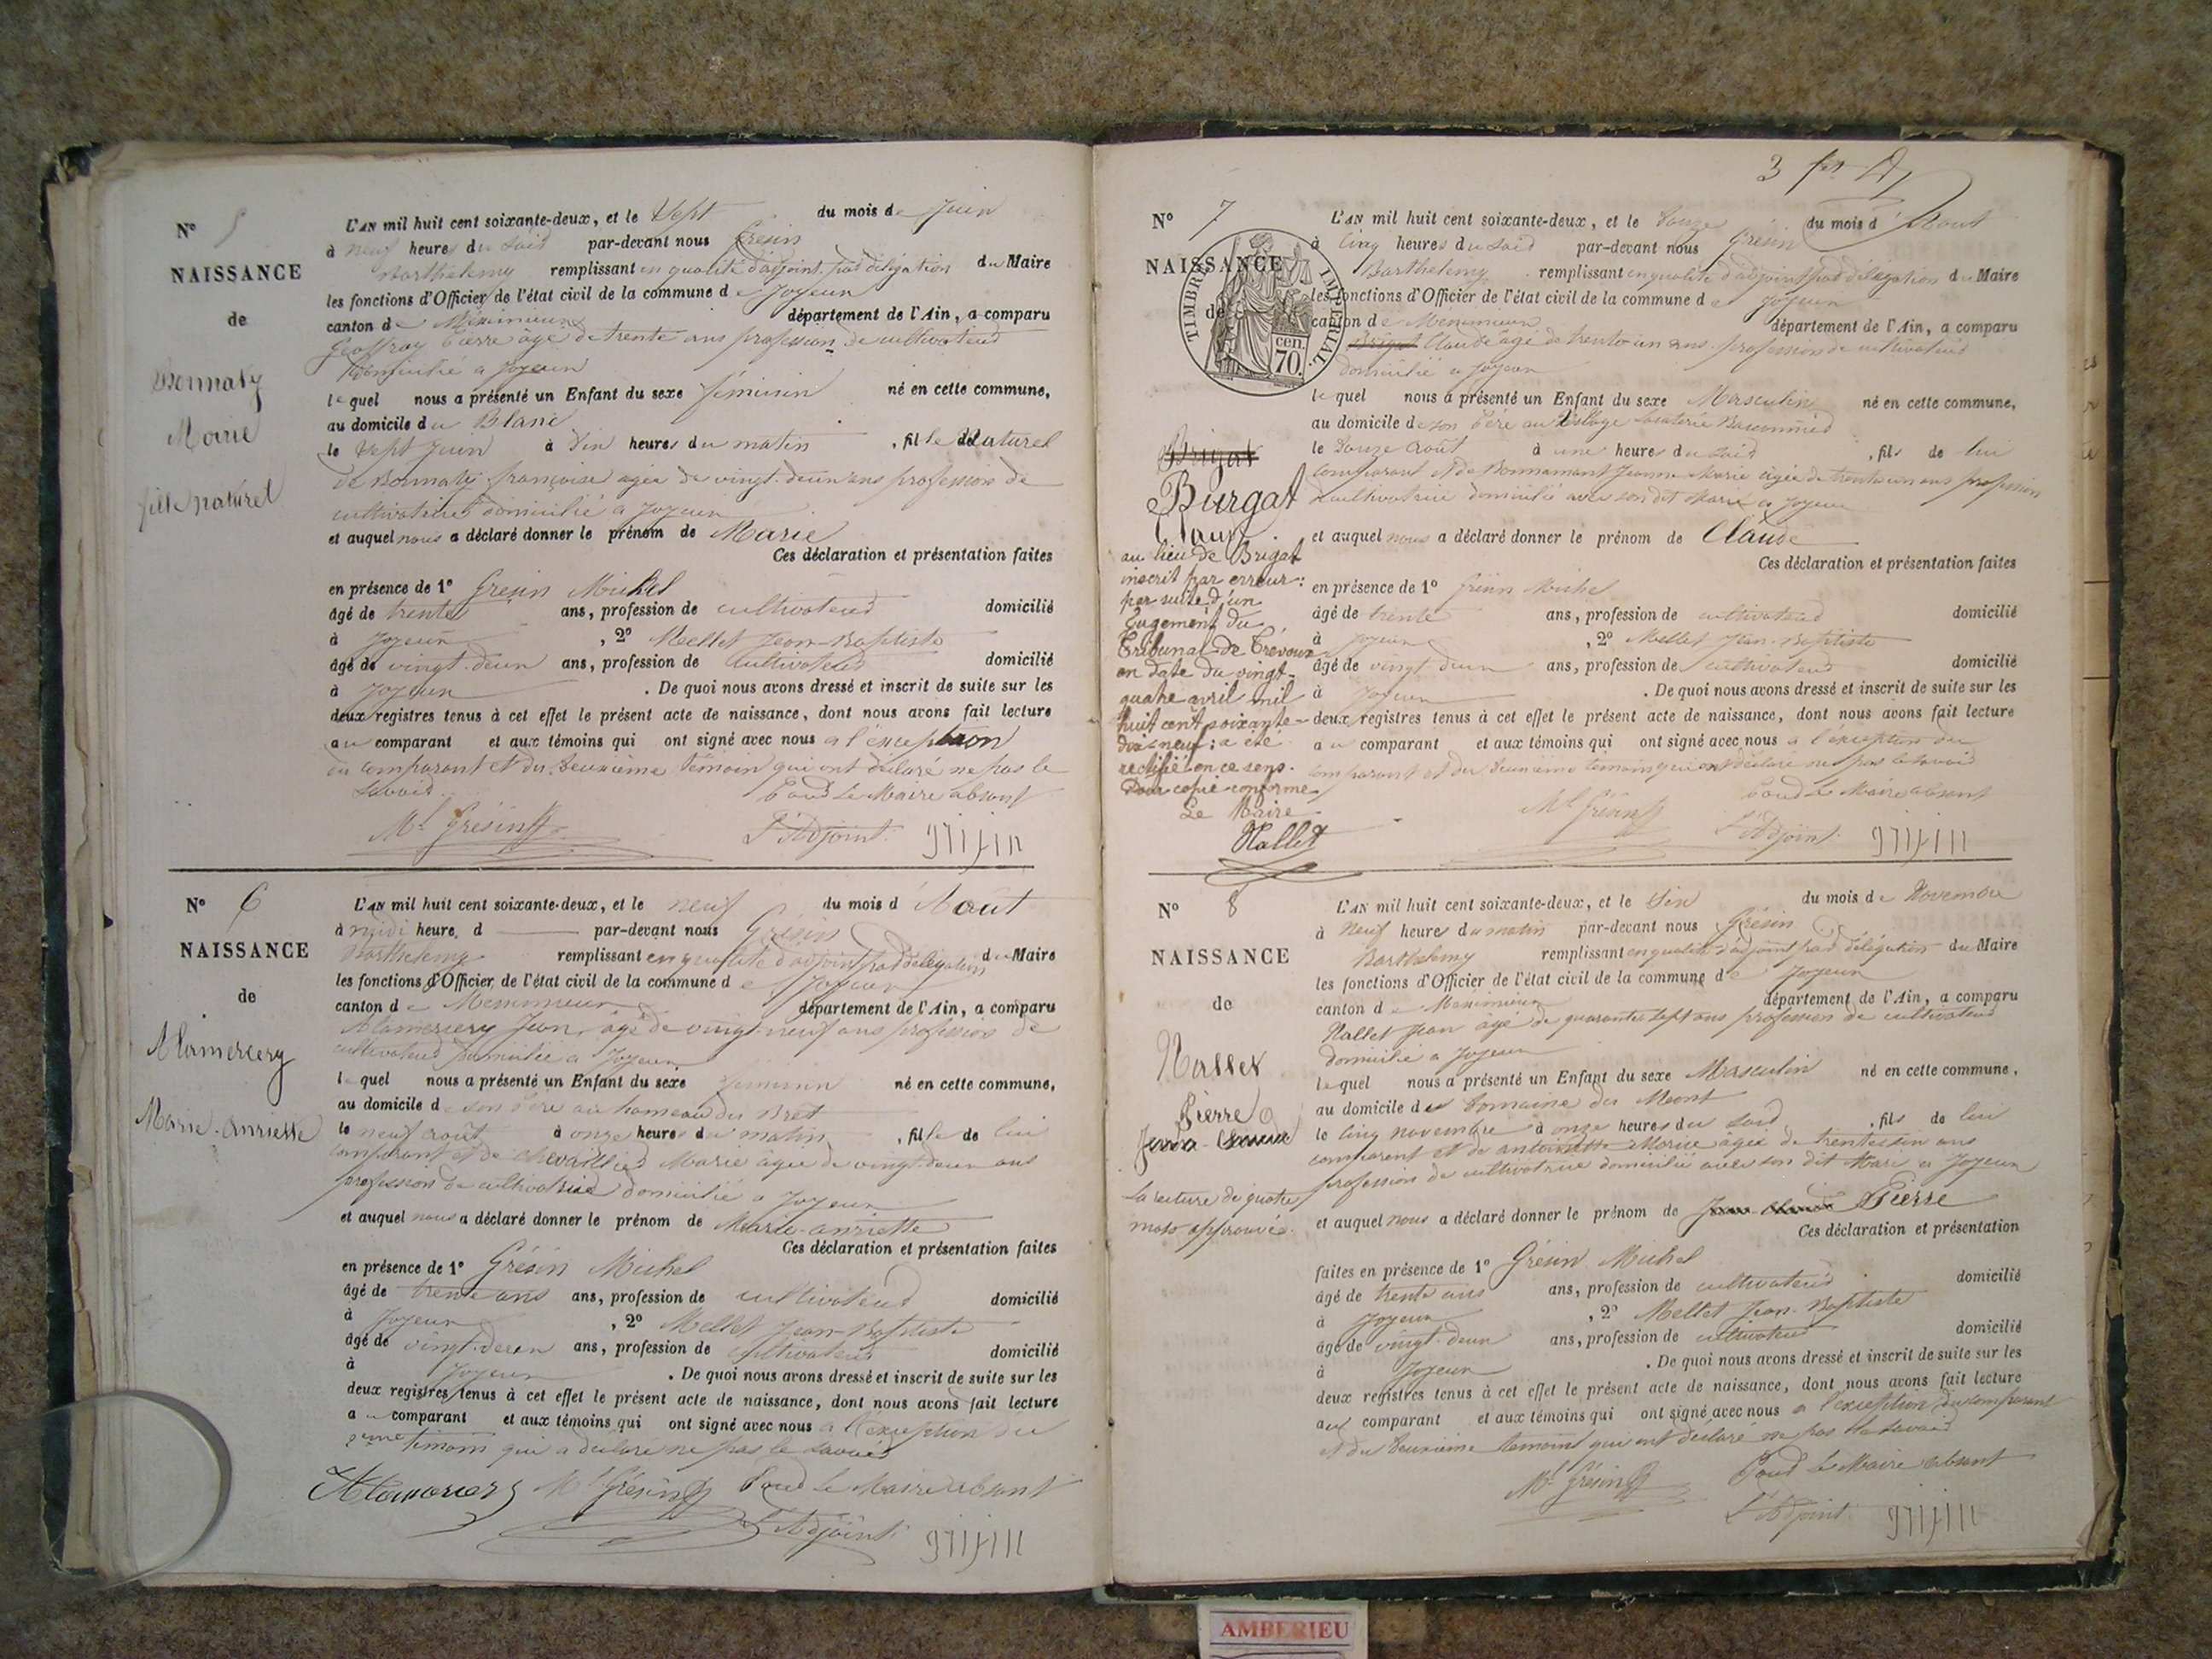 N° 5
NAISSANCE
de
Bonnaty
Marie
fille naturel
L'AN mil huit cent soixante-deux, et le Sept du mois de Juin
à neuf heures du soir par-devant nous Grésin
Barthélemy remplissant en qualité d'adjoint par délégation du Maire
les fonctions d'Officier de l'état civil de la commune de Joyeux
canton de Méximieux département de l'Ain, a comparu
Geoffray Pierre âgé de trente ans profession de cultivateur
domicilié a Joyeux
lequel nous a présenté un Enfant du sexe féminin né en cette commune,
au domicile du Blanc
le Sept Juin à Six heures du matin, fille Naturel
de Bonnaty françoise agée de vingt-deux ans profession de
cultivatrice domicilié a Joyeux
et auquel nous a déclaré donner le prénom de Marie
Ces déclaration et présentation faites
en présence de 1° Grésin Michel
âgé de trente ans, profession de cultivateur domicilié
à Joyeux, 2° Mellet Jean-Baptiste
âgé de vingt-deux ans, profession de Cultivateur domicilié
à Joyeux. De quoi nous avons dressé et inscrit de suite sur les
deux registres tenus à cet effet le présent acte de naissance, dont nous avons fait lecture
au comparant et aux témoins qui ont signé avec nous a l'exception
du comparant et du deuxième témoin qui ont déclaré ne pas le
Savoir
Pour Le Maire absent
Ml Grésin L'Adjoint
N° 6
NAISSANCE
de
Alamercery
Marie-anriette
L'AN mil huit cent soixante-deux, et le neuf du mois d'Août
à midi heure, d par-devant nous Grésin
Barthelemy remplissant en qualité d'adjoint par délégation du Maire
les fonctions d'Officier de l'état civil de la commune de Joyeux
canton de Meximieux département de l'Ain, a comparu
Alamercery Jean, âgé de vingt-neuf ans profession de
cultivateur domicilié a Joyeux
lequel nous a présenté un Enfant du sexe féminin né en cette commune,
au domicile de son Père au hameau du Bret
le neuf août à onze heures du matin, fille de lui
comparant et de chevallier Marie âgée de vingt-deux ans
profession de cultivatrice domicilié a Joyeux
et auquel nous a déclaré donner le prénom de Marie-anriette
Ces déclaration et présentation faites
en présence de 1° Grésin Michel
âgé de trente ans ans, profession de cultivateur domicilié
à Joyeux, 2° Mellet Jean-Baptiste
âgé de vingt-deux ans, profession de Cultivateur domicilié
à Joyeux. De quoi nous avons dressé et inscrit de suite sur les
deux registres tenus à cet effet le présent acte de naissance, dont nous avons fait lecture
au comparant et aux témoins qui ont signé avec nous a l'exception du
2eme témoin qui a déclaré ne pas le savoir
Alamercery Ml Grésin Pour Le Maire absent
L'Adjoint
3
N° 7
NAISSANCE
de
TIMBRE IMPERIAL
70 cen.
Brigat
Burgat
Claude
au lieu de Brigat
inscrit par erreur:
par suite d'un
Jugement du
Tribunal de Trévoux
en date du vingt-
quatre avril mil
huit cent soixante-
dix-neuf; a été
rectifié en ce sens.
Pour copie conforme
Le Maire
Nallet
L'AN mil huit cent soixante-deux, et le douze du mois d'Aout
à Cinq heures du soir par-devant nous Grésin
Barthelemy remplissant en qualité d'adjoint par délégation du Maire
les fonctions d'Officier de l'état civil de la commune de Joyeux
canton de Méximieux département de l'Ain, a comparu
Brigat Claude agé de trente-un ans profession de cultivateur
domicilié a Joyeux
lequel nous a présenté un Enfant du sexe Masculin né en cette commune,
au domicile de son Père au Village
le Douze Août à une heures du soir, fils de lui
comparant et de Bonnamant Jeanne-Marie agée de trente-un ans profession
de cultivatrice domicilié avec son dit Mari a Joyeux
et auquel nous a déclaré donner le prénom de Claude
Ces déclaration et présentation faites
en présence de 1° Grésin Michel
âgé de trente ans, profession de cultivateur domicilié
à Joyeux, 2° Mellet Jean-Baptiste
âgé de vingt-deux ans, profession de cultivateur domicilié
à Joyeux. De quoi nous avons dressé et inscrit de suite sur les
deux registres tenus à cet effet le présent acte de naissance, dont nous avons fait lecture
au comparant et aux témoins qui ont signé avec nous a l'exception du
comparant et du deuxième témoin qui ont déclaré ne pas le savoir
Pour Le Maire absent
Ml Grésin L'Adjoint
N° 8
NAISSANCE
de
Nallet
Pierre
Jean-Claude
La rature de quatre
mots approuvée.
L'AN mil huit cent soixante-deux, et le Six du mois de Novembre
à Neuf heures du matin par-devant nous Grésin
Barthelemy remplissant en qualité d'adjoint par délégation du Maire
les fonctions d'Officier de l'état civil de la commune de Joyeux
canton de Meximieux département de l'Ain, a comparu
Nallet Jean âgé de quarante-sept ans profession de cultivateur
domicilié a Joyeux
lequel nous a présenté un Enfant du sexe Masculin né en cette commune,
au domicile du Domaine du Mont
le Cinq novembre à onze heures du soir, fils de lui
comparant et de antoinette Marie âgée de trente-six ans
profession de cultivatrice domicilié avec son dit Mari a Joyeux
et auquel nous a déclaré donner le prénom de Jean-Claude Pierre
Ces déclaration et présentation
faites en présence de 1° Grésin Michel
âgé de trente ans ans, profession de cultivateur domicilié
à Joyeux, 2° Mellet Jean-Baptiste
âgé de vingt-deux ans, profession de cultivateur domicilié
à Joyeux. De quoi nous avons dressé et inscrit de suite sur les
deux registres tenus à cet effet le présent acte de naissance, dont nous avons fait lecture
au comparant et aux témoins qui ont signé avec nous a l'exception du comparant
et du deuxième témoins qui ont déclaré ne pas le savoir
Pour Le Maire absent
Ml Grésin L'Adjoint
AMBERIEU